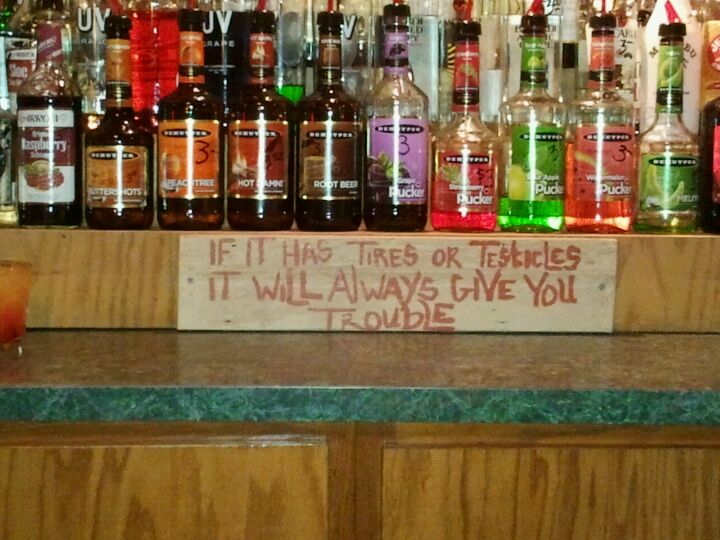 UV
UV
GRAPE
Raspberry
DEKUYPER
BUTTERSHOTS
DEKUYPER
3-
PEACHTREE
DEKUYPER
3
HOT DAMN!
DEKUYPER
ROOT BEER
DEKUYPER
3
Grape
Pucker
DEKUYPER
Strawberry
Pucker
DEKUYPER
Sour Apple
Pucker
DEKUYPER
3
Watermelon
Pucker
DEKUYPER
MELON
IF IT HAS TIRES OR TESTICLES
IT WILL AlWAYS GIVE YOU
TROUBLE